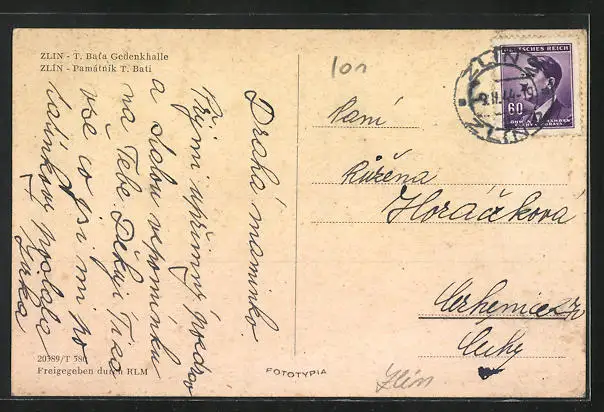 ZLIN - T. Baťa Gedenkhalle
ZLÍN - Památník T. Bati
101
Drahá maminko
Přijmi upřímný pozdrav
a stalou vzpomínku
na Tebe. Děkuji Ti za
vše co jsi mi po
tatínkovi poslala
Jirka
Paní
Růžena
Horáčková
Cerhenice
Zlín
DEUTSCHES REICH
60
ZLIN
20389/T 380
Freigegeben durch RLM
FOTOTYPIA